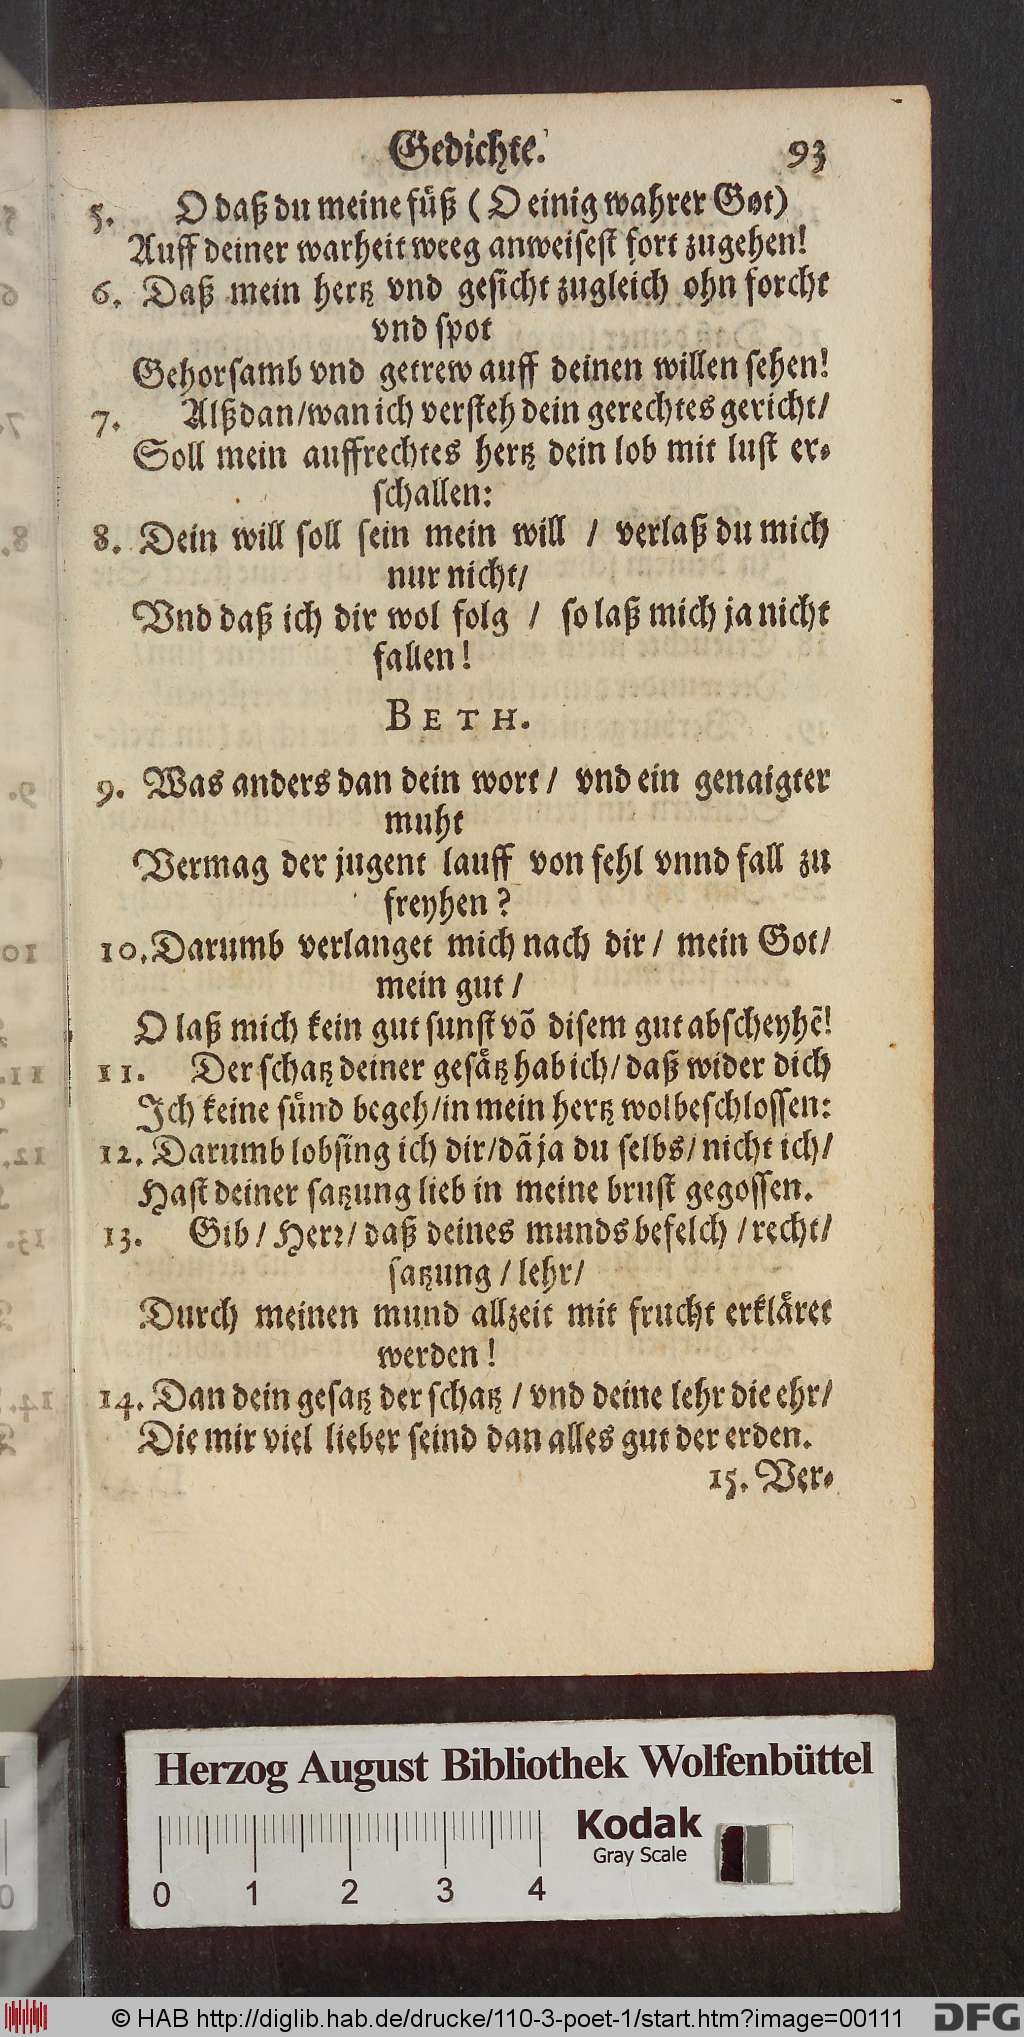 Gedichte. 93
5. O daß du meine füß ( O einig wahrer Got)
Auff deiner warheit weeg anweisest fort zugehen!
6. Daß mein hertz vnd gesicht zugleich ohn forcht
vnd spot
Gehorsamb vnd getrew auff deinen willen sehen!
7. Alßdan/wan ich versteh dein gerechtes gericht/
Soll mein auffrechtes hertz dein lob mit lust er-
schallen:
8. Dein will soll sein mein will / verlaß du mich
nur nicht/
Vnd daß ich dir wol folg / so laß mich ja nicht
fallen!
BETH.
9. Was anders dan dein wort / vnd ein genaigter
muht
Vermag der jugent lauff von fehl vnnd fall zu
freyhen?
10. Darumb verlanget mich nach dir / mein Got/
mein gut /
O laß mich kein gut sunst võ disem gut abscheyhẽ!
11. Der schatz deiner gesätz hab ich/ daß wider dich
Ich keine sünd begeh/in mein hertz wol beschlossen:
12. Darumb lobsing ich dir/dã ja du selbs/ nicht ich/
Hast deiner satzung lieb in meine brust gegossen.
13. Gib / Herr/ daß deines munds befelch / recht/
satzung / lehr/
Durch meinen mund allzeit mit frucht erkläret
werden!
14. Dan dein gesatz der schatz / vnd deine lehr die ehr/
Die mir viel lieber seind dan alles gut der erden.
15. Ver-
Herzog August Bibliothek Wolfenbüttel
Kodak
Gray Scale
0 1 2 3 4
© HAB http://diglib.hab.de/drucke/110-3-poet-1/start.htm?image=00111
DFG